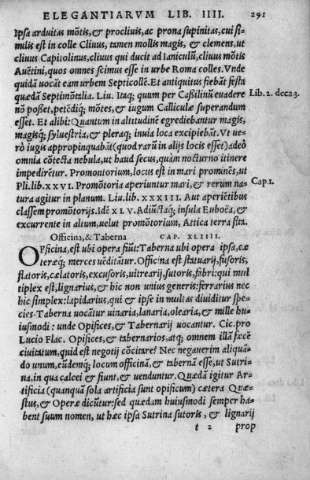 ELEGANTIARVM LIB. IIII. 291
Ipsa arduitas mõtis, & procliuis, ac prona supinitas, cui si-
milis est in colle Cliuus, tamen mollis magis, & clemens, ut
cliuus Capitolinus, cliuus qui ducit ad Ianiculũ, cliuus mõtis
Auẽtini, quos omnes scimus esse in urbe Roma colles. Vnde
quidã uocãt eam urbem Septicollẽ. Et antiquitus fiebãt festa
quædã Septimõtelia. Liu. Itaq; quum per Casilinũ euadere Lib. 2. dec. 23.
nõ posset, petẽdiq́; mõtes, & iugum Calliculæ superandum
esset. Et alibi: Quantum in altitudinẽ egrediebantur magis,
magisq́; syluestria, & pleraq; inuia loca excipiebãt. Vt ue-
rò iugis appropinquabãt (quod rarũ in alijs locis esset) adeò
omnia cõtecta nebula, ut haud secus, quàm nocturno itinere
impedirẽtur. Promontorium, locus est in mari prominẽs, ut
Pli. lib. XXVI. Promõtoria aperiuntur mari, & rerum na- Cap. 1.
tura agitur in planum. Liu. lib. XXXIII. Aut aperiẽtibus
classem promõtorijs. Idẽ XLV. Adiũctaq́; insula Eubœa, &
excurrente in altum, uelut promõtorium, Attica terra sita.
Officina, & Taberna CAP. XLIIII.
OFficina, est ubi opera fiũt: Taberna ubi opera ipsa, cæ
teræq; merces uẽditãtur. Officina est statuarij, fusoris,
flatoris, cælatoris, excusoris, uitrearij, sutoris, fabri: qui mul
tiplex est, lignarius, & hic non unius generis: ferrarius nec
hic simplex: lapidarius, qui & ipse in multas diuiditur spe-
cies. Taberna uocãtur uinaria, lanaria, olearia, & mille hu-
iusmodi: unde Opifices, & Tabernarij uocantur. Cic. pro
Lucio Flac. Opifices, & tabernarios, atq; omnem illã fæcẽ
ciuitatum, quid est negotij cõcitare? Nec negauerim aliquã-
do unum, eũdemq́; locum officinã, & tabernã esse, ut Sutri-
na, in qua calcei & fiunt, & uenduntur. Quædã igitur Ar-
tificia (quanquã sola artificia sunt opificum) cætera Quæ-
stus, & Operæ dicũtur: sed quædam huiusmodi semper ha-
bent suum nomen, ut hæc ipsa Sutrina sutoris, & lignarij
t 2 prop